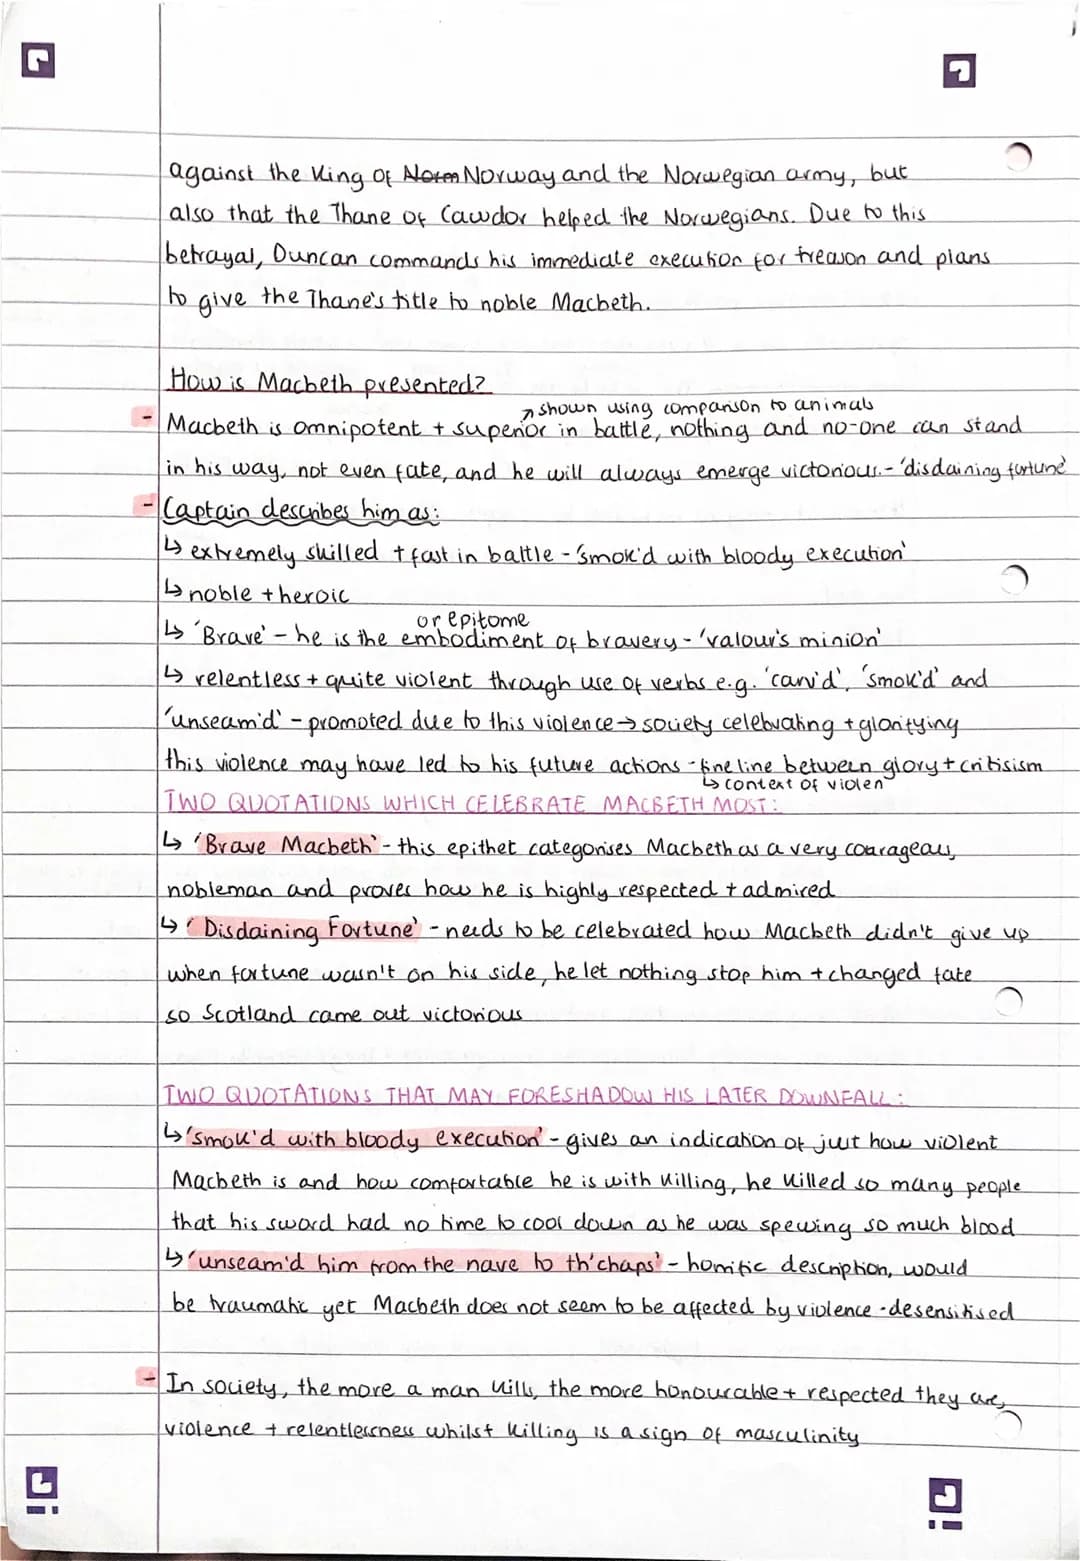 against the King of Norm Norway and the Norwegian army, but
also that the Thane of Cawdor helped the Norwegians. Due to this
betrayal, Duncan commands his immediate execution for treason and plans
to give the Thane's title to noble Macbeth.
How is Macbeth presented?
↗ shown using comparison to animals
- Macbeth is omnipotent + superior in battle, nothing and no-one can stand
in his way, not even fate, and he will always emerge victorious. - 'disdaining fortune'
- Captain describes him as:
↳ extremely skilled + fast in battle - 'smok'd with bloody execution'
↳ noble + heroic
or epitome
↳ 'Brave' - he is the embodiment of bravery - 'valour's minion'
↳ relentless + quite violent through use of verbs e.g. 'carv'd', 'smok'd' and
'unseam'd' - promoted due to this violence → society celebrating + glorifying
this violence may have led to his future actions - fine line between glory + critisism
↳ context of violen
TWO QUOTATIONS WHICH CELEBRATE MACBETH MOST:
↳ 'Brave Macbeth' - this epithet categorises Macbeth as a very courageous,
nobleman and proves how he is highly respected + admired
↳ 'Disdaining Fortune' - needs to be celebrated how Macbeth didn't give up
when fortune wasn't on his side, he let nothing stop him + changed fate
so Scotland came out victorious
TWO QUOTATIONS THAT MAY FORESHADOW HIS LATER DOWNFALL:
↳ 'smok'd with bloody execution' - gives an indication of just how violent
Macbeth is and how comfortable he is with killing, he killed so many people
that his sword had no time to cool down as he was spewing so much blood
↳ 'unseam'd him from the nave to th'chaps' - horrific description, would
be traumatic yet Macbeth does not seem to be affected by violence - desensitised
- In society, the more a man kills, the more honourable + respected they are,
violence + relentlessness whilst killing is a sign of masculinity